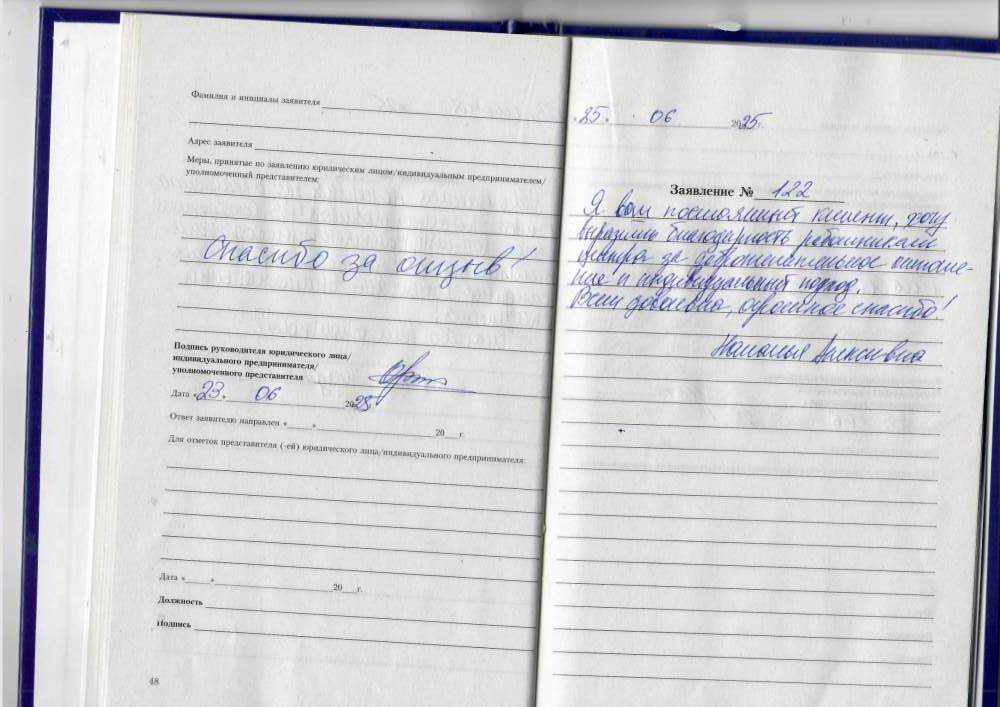 Фамилия и инициалы заявителя
Адрес заявителя
Меры, принятые по заявлению юридическим лицом/индивидуальным предпринимателем/
уполномоченный представителем:
Спасибо за отзыв!
Подпись руководителя юридического лица/
индивидуального предпринимателя/
уполномоченного представителя
Дата «23. 06 2025
Ответ заявителю направлен « » 20 г.
Для отметок представителя (-ей) юридического лица/индивидуального предпринимателя:
Дата « » 20 г.
Должность
Подпись
48
25. 06 2025г.
Заявление № 122
Я ваш постоянный клиент, хочу
выразить благодарность работникам
центра за доброжелательное отноше-
ние и индивидуальный подход.
Всем довольна, огромное спасибо!
Наталья Алексеевна